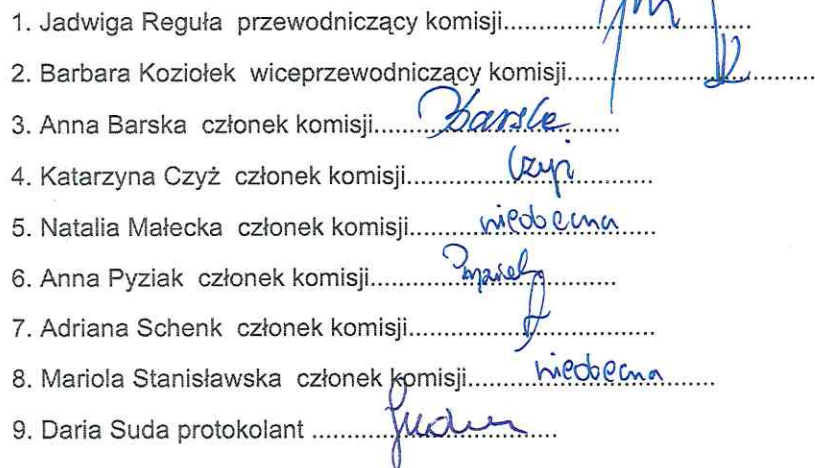 1. Jadwiga Reguła przewodniczący komisji..............................
2. Barbara Koziołek wiceprzewodniczący komisji..............................
3. Anna Barska członek komisji........Barska........
4. Katarzyna Czyż członek komisji............Czyż............
5. Natalia Małecka członek komisji..........nieobecna.....
6. Anna Pyziak członek komisji..............................
7. Adriana Schenk członek komisji..............................
8. Mariola Stanisławska członek komisji.........nieobecna.......
9. Daria Suda protokolant ..........Suda..........